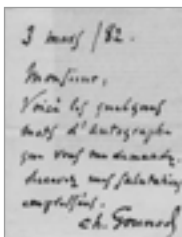 3 mars /82.
Monsieur,
Voici les quelques
mots d'autographe
que vous me demandez.
Recevez mes salutations
empressées.
Ch. Gounod